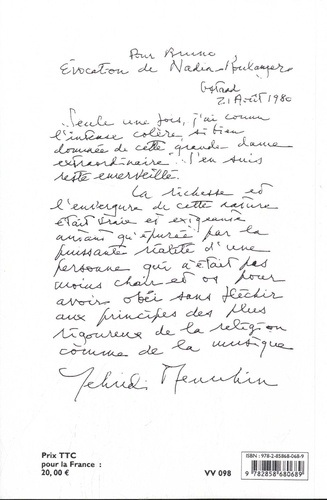 Pour Bruno,
Evocation de Nadia Boulanger
Gstaad
21 Août 1980
Seule une fois, j'ai connu
l'intense colère si bien
dominée de cette grande dame
extraordinaire. J'en suis
resté émerveillé.
La richesse et
l'envergure de cette nature
était vraie et exigeante
autant qu'épurée par la
puissante réalité d'une
personne qui n'était pas
moins chair et os pour
avoir obéi sans fléchir
aux principes des plus
rigoureux de la religion
comme de la musique
Yehudi Menuhin
Prix TTC
pour la France :
20,00 €
VV 098
ISBN : 978-2-85868-068-9
9 782858 680689